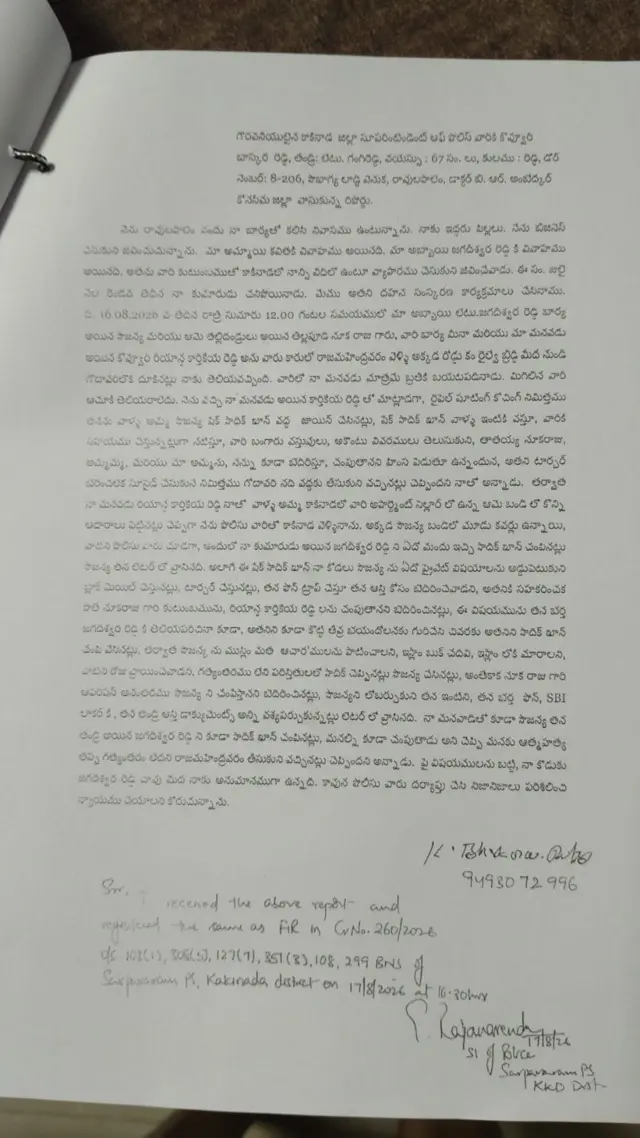 గౌరవనీయులైన కాకినాడ జిల్లా సూపరింటెండెంట్ ఆఫ్ పోలీస్ వారికి కొవ్వూరి
బాస్కర రెడ్డి, తండ్రి: లేటు. గంగిరెడ్డి, వయస్సు : 67 సం. లు, కులము : రెడ్డి, డోర్
నెంబర్: 8-206, సౌభాగ్య లాడ్జి వెనుక, రావులపాలెం, డాక్టర్ బి. ఆర్. అంబేద్కర్
కోనసీమ జిల్లా వాసుకున్న రిపోర్టు.
నేను రావులపాలెం నందు నా బార్యతో కలిసి నివాసము ఉంటున్నాను. నాకు ఇద్దరు పిల్లలు. నేను బిజినెస్
చేసుకుని జీవించుచున్నాను. మా అమ్మాయి కవితకి వివాహము అయినది. మా అబ్బాయి జగదీశ్వర రెడ్డి కి వివాహము
అయినది. అతను వారి కుటుంబముతో కాకినాడలో నాన్సి విధిలో ఉంటూ వ్యాపారము చేసుకుని జీవించేవాడు. ఈ సం. జులై
నెల రెండవ తేదిన నా కుమారుడు చనిపోయినాడు. మేము అతని దహన సంస్కరణ కార్యక్రమాలు చేసినాము.
ది. 16.08.2026 వ తేదిన రాత్రి సుమారు 12.00 గంటల సమయములో మా అబ్బాయి లేటు.జగదీశ్వర రెడ్డి బార్య
అయిన సౌజన్య మరియు ఆమె తల్లిదండ్రులు అయిన తెల్లపూడి నూక రాజు గారు, వారి బార్య మీనా మరియు మా మనవడు
అయిన కొవ్వూరి రియాన్ష్ కార్తికేయ రెడ్డి అను వారు కారులో రాజమహేంద్రవరం వెళ్ళి అక్కడ రోడ్డు కం రైల్వే బ్రిడ్జి మీద నుండి
గోదావరిలోకి దూకినట్లు నాకు తెలియవచ్చింది. వారిలో నా మనవడు మాత్రమే బ్రతికి బయటపడినాడు. మిగిలిన వారి
ఆచూకీ తెలియరాలేదు. నేను వచ్చి నా మనవడు అయిన కార్తికేయ రెడ్డి తో మాట్లాడగా, రైఫిల్ షూటింగ్ కోచింగ్ నిమిత్తము
తనను వాళ్ళ అమ్మ సౌజన్య షేక్ సాదిక్ ఖాన్ వద్ద జాయిన్ చేసినట్లు, షేక్ సాదిక్ ఖాన్ వాళ్ళ ఇంటికి వస్తూ, వారికి
సహయము చేస్తున్నట్లుగా నటిస్తూ, వారి బంగారు వస్తువులు, అకౌంటు వివరములు తెలుసుకుని, తాతయ్య నూకరాజు,
అమ్మమ్మ, మరియు మా అమ్మను, నన్ను కూడా బెదిరిస్తూ, చంపుతానని హింస పెడుతూ ఉన్నందున, అతని టార్చర్
భరించలేక సూసైడ్ చేసుకునే నిమిత్తము గోదావరి నది వద్దకు తీసుకుని వచ్చినట్లు చెప్పిందని నాతో అన్నాడు. తర్వాత
నా మనవడు రియాన్ష్ కార్తికేయ రెడ్డి నాతో వాళ్ళ అమ్మ కాకినాడలో వారి అపార్ట్మెంట్ సెల్లార్ లో ఉన్న ఆమె బండి లో కొన్ని
ఆదారాలు పెట్టినట్లు చెప్పగా నేను పోలీసు వారితో కాకినాడ వెళ్ళినాను. అక్కడ సౌజన్య బండిలో మూడు కవర్లు ఉన్నాయి,
వాటిని పోలీసు వారు చూడగా, అందులో నా కుమారుడు అయిన జగదీశ్వర రెడ్డి ని ఏదో మందు ఇచ్చి సాదిక్ ఖాన్ చంపినట్లు
సౌజన్య తన లెటర్ లో వ్రాసినది. అలాగే ఈ షేక్ సాదిక్ ఖాన్ నా కోడలు సౌజన్య ను ఏదో ప్రైవేట్ విషయాలను అడ్డుపెటుకుని
బ్లాక్ మెయిల్ చేస్తునట్లు, టార్చర్ చేస్తునట్లు, తన ఫోన్ ట్రాప్ చేస్తూ తన ఆస్తి కోసం బెదిరించేవాడని, అతనికి సహకరించక
పోతే నూకరాజు గారి కుటుంబమును, రియాన్ష్ కార్తికేయ రెడ్డి లను చంపుతానని బెదిరించినట్లు, ఈ విషయమును తన భర్త
జగదీశ్వర రెడ్డి కి తెలియపరిచినా కూడా, అతనిని కూడా కొట్టి తీవ్ర భయందోలనకు గురిచేసి చివరకు అతనిని సాదిక్ ఖాన్
చంపి వేసినట్లు, తర్వాత సౌజన్య ను ముస్లిం మత ఆచారములను పాటించాలని, ఇస్లాం బుక్ చదివి, ఇస్లాం లోకి మారాలని,
వాటిని రోజు వ్రాయించేవాడని, గత్యంతరము లేని పరిస్తితులలో సాదిక్ చెప్పినట్లు సౌజన్య చేసినట్లు, అంతేకాక నూక రాజు గారి
ఆపరేషన్ అనంతరము సౌజన్య ని చంపేస్తానని బెదిరించినట్లు, సౌజన్యని లోబర్చుకుని తన ఇంటిని, తన భర్త ఫోన్, SBI
లాకర్ కీ , తన తండ్రి ఆస్తి డాక్యుమెంట్స్ అన్ని వశ్యపర్చుకున్నట్లు లెటర్ లో వ్రాసినది. నా మనవాడితో కూడా సౌజన్య తన
తండ్రి అయిన జగదీశ్వర రెడ్డి ని కూడా సాదిక్ ఖాన్ చంపినట్లు, మనల్ని కూడా చంపుతాడు అని చెప్పి మనకు ఆత్మహత్య
తప్ప గత్యంతరం లేదని రాజమహేంద్రవరం తీసుకుని వచ్చినట్లు చెప్పిందని అన్నాడు. పై విషయములను బట్టి, నా కొడుకు
జగదీశ్వర రెడ్డి చావు మీద నాకు అనుమానముగా ఉన్నది. కావున పోలీసు వారు దర్యాప్తు చేసి నిజానిజాలు పరిశీలించి
న్యాయము చేయాలని కోరుచున్నాను.
K. Bhaskar. Reddy
9493072996
Sir, I received the above report and
registered the same as FIR in Cr.No. 260/2026
u/s 103(1), 308(5), 127(7), 351(3), 108, 299 BNS of
Sarpavaram PS, Kakinada district on 17/8/2026 at 16.30hrs
17/8/26
SI of Police
Sarpavaram PS
KKD Dist